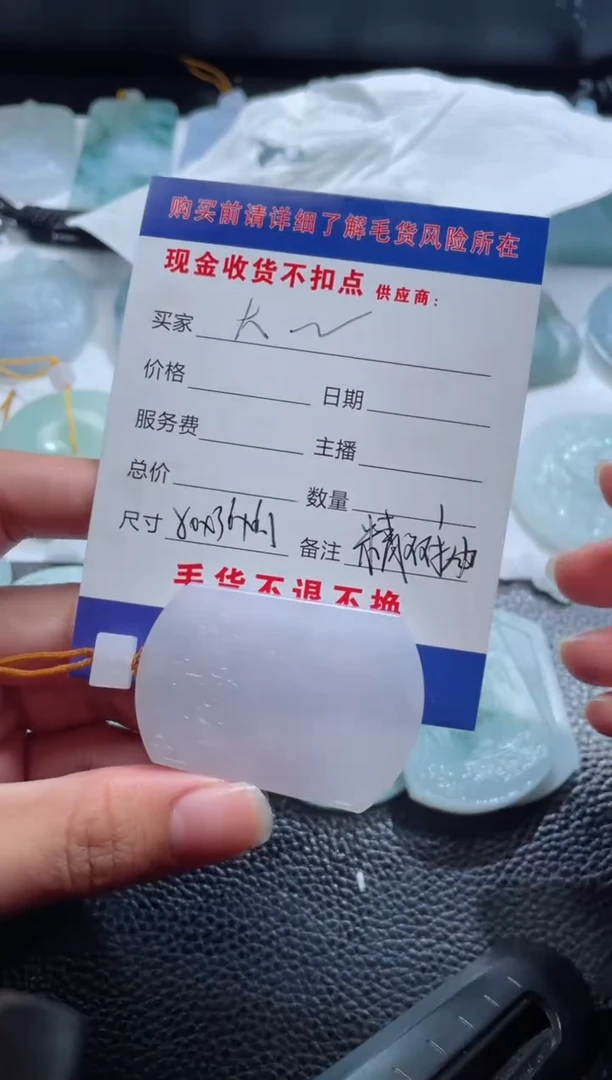 购买前请详细了解毛货风险所在
现金收货不扣点 供应商：
买家
价格 日期
服务费 主播
总价 数量 1
尺寸 备注
毛货不退不换